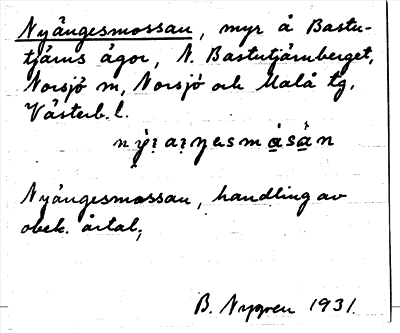 Nyängesmossan, myr å Bastu-
tjärns ägor, N. Bastutjärnberget,
Norsjö sn, Norsjö och Malå tg,
Västerb. l.
Nyängesmossan, handling av
obek. årtal;
B. Nygren 1931.